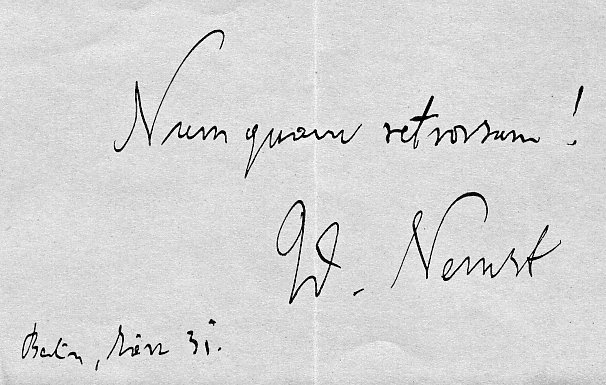 Numquam retrorsum!
W. Nernst
Berlin, März 31.